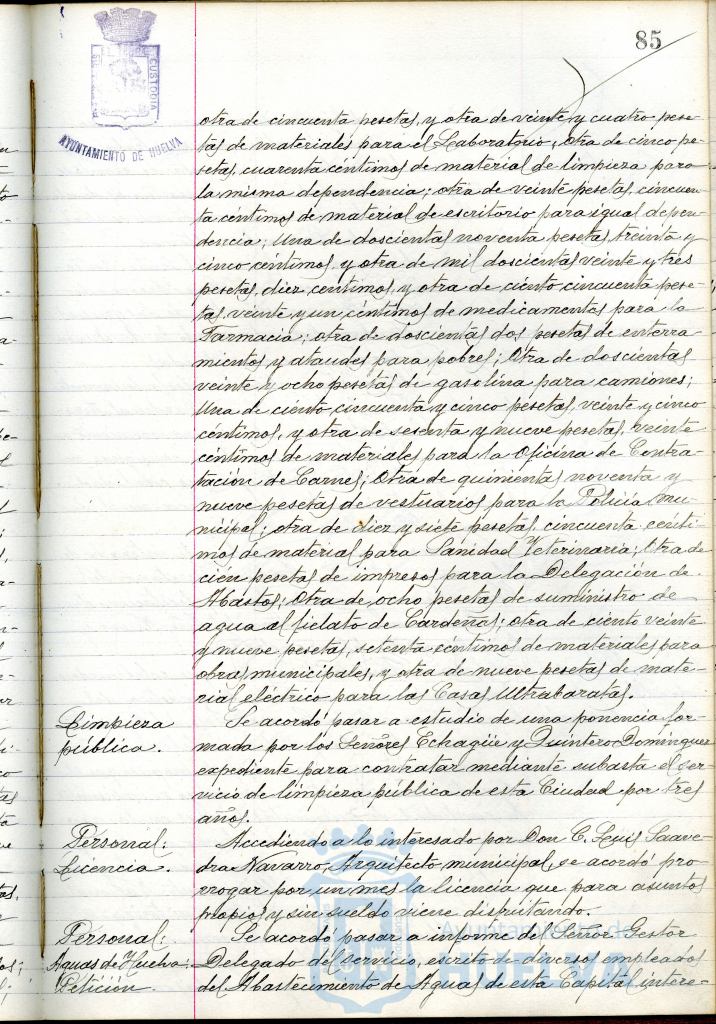 85
AYUNTAMIENTO DE HUELVA
CUSTODIA
otra de cincuenta pesetas, y otra de veinte y cuatro pese-
tas de materiales para el Laboratorio; otra de cinco pe-
setas, cuarenta céntimos de material de limpieza para
la misma dependencia; otra de veinte pesetas, cincuen-
ta centimos de material de escritorio para igual depen-
dencia; Una de doscientas noventa pesetas, treinta y
cinco céntimos, y otra de mil doscientas veinte y tres
pesetas, diez centimos, y otra de ciento cincuenta pese-
tas, veinte y un céntimos de medicamentos para la
Farmacia; otra de doscientas dos pesetas de enterra-
mientos y ataudes para pobres; Otra de doscientas
veinte y ocho pesetas de gasolina para camiones;
Una de ciento cincuenta y cinco pesetas, veinte y cinco
céntimos, y otra de sesenta y nueve pesetas, veinte
céntimos de materiales para la Oficina de Contra-
tación de Carnes; Otra de quinientas noventa y
nueve pesetas de vestuarios para la Policía mu-
nicipal; otra de diez y siete pesetas, cincuenta cénti-
mos de material para Sanidad Veterinaria; Otra de
cien pesetas de impresos para la Delegación de
Abastos; Otra de ocho pesetas de suministro de
agua al fielato de Cardeñas; otra de ciento veinte
y nueve pesetas, setenta céntimos de materiales para
obras municipales, y otra de nueve pesetas de mate-
rial eléctrico para las Casas Ultrabaratas.
Limpieza
pública.
Se acordó pasar a estudio de una ponencia for-
mada por los Señores Echagüe y Quintero Domínguez
expediente para contratar mediante subasta el ser-
vicio de limpieza pública de esta Ciudad por tres
años.
Personal:
Licencia.
Accediendo a lo interesado por Don C. Luis Saave-
dra Navarro, Arquitecto municipal, se acordó pro-
rrogar por un mes la licencia que para asuntos
propios y sin sueldo viene disfrutando.
Personal:
Aguas de Huelva:
Petición.
Se acordó pasar a informe del Señor Gestor
Delegado del servicio, escrito de diversos empleados
del Abastecimiento de Aguas de esta Capital intere-
Ayuntamiento de
HUELVA